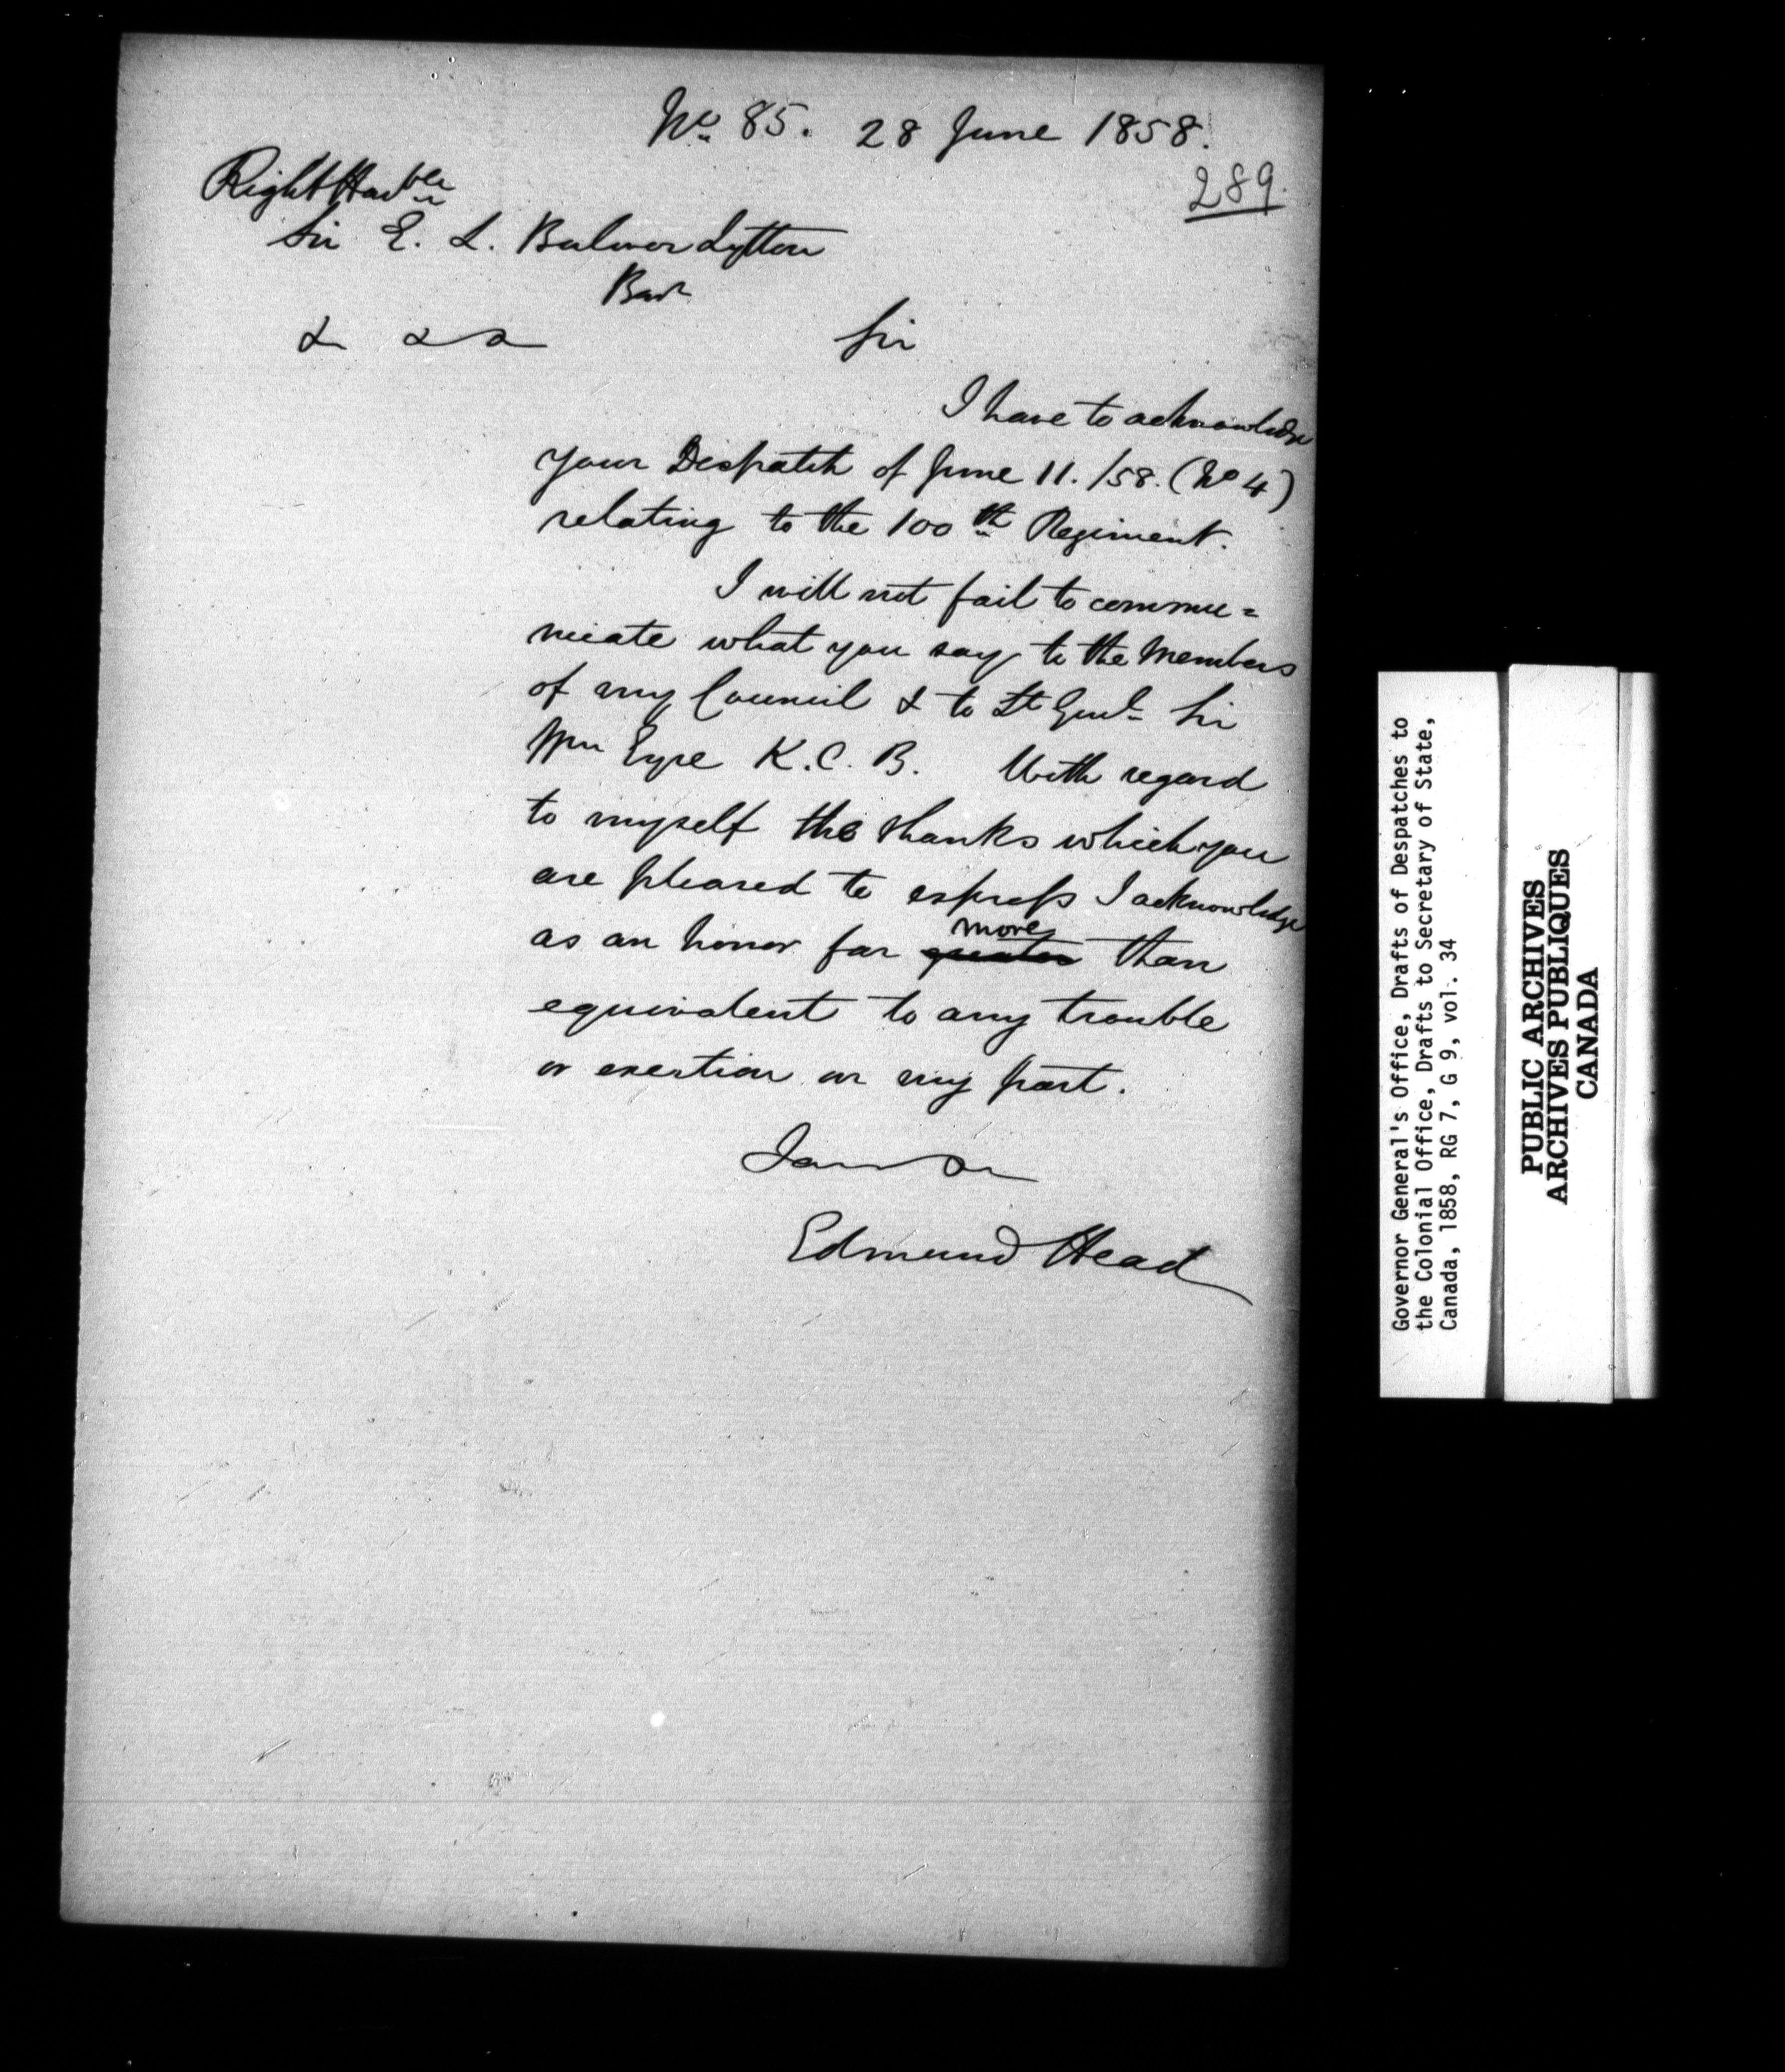 No. 85. 28 June 1858.
289.
Right Honble
Sir E. L. Bulwer Lytton
Bart
& & &
Sir
I have to acknowledge
your Despatch of June 11. /58. (No 4)
relating to the 100th Regiment.
I will not fail to commu=
nicate what you say to the Members
of my Council & to Lt Genl Sir
Wm Eyre K.C.B. With regard
to myself the thanks which you
are pleased to express I acknowledge
as an honor far greater more than
equivalent to any trouble
or exertion on my part.
I am &c
Edmund Head
Governor General's Office, Drafts of Despatches to
the Colonial Office, Drafts to Secretary of State,
Canada, 1858, RG 7, G 9, vol. 34
PUBLIC ARCHIVES
ARCHIVES PUBLIQUES
CANADA